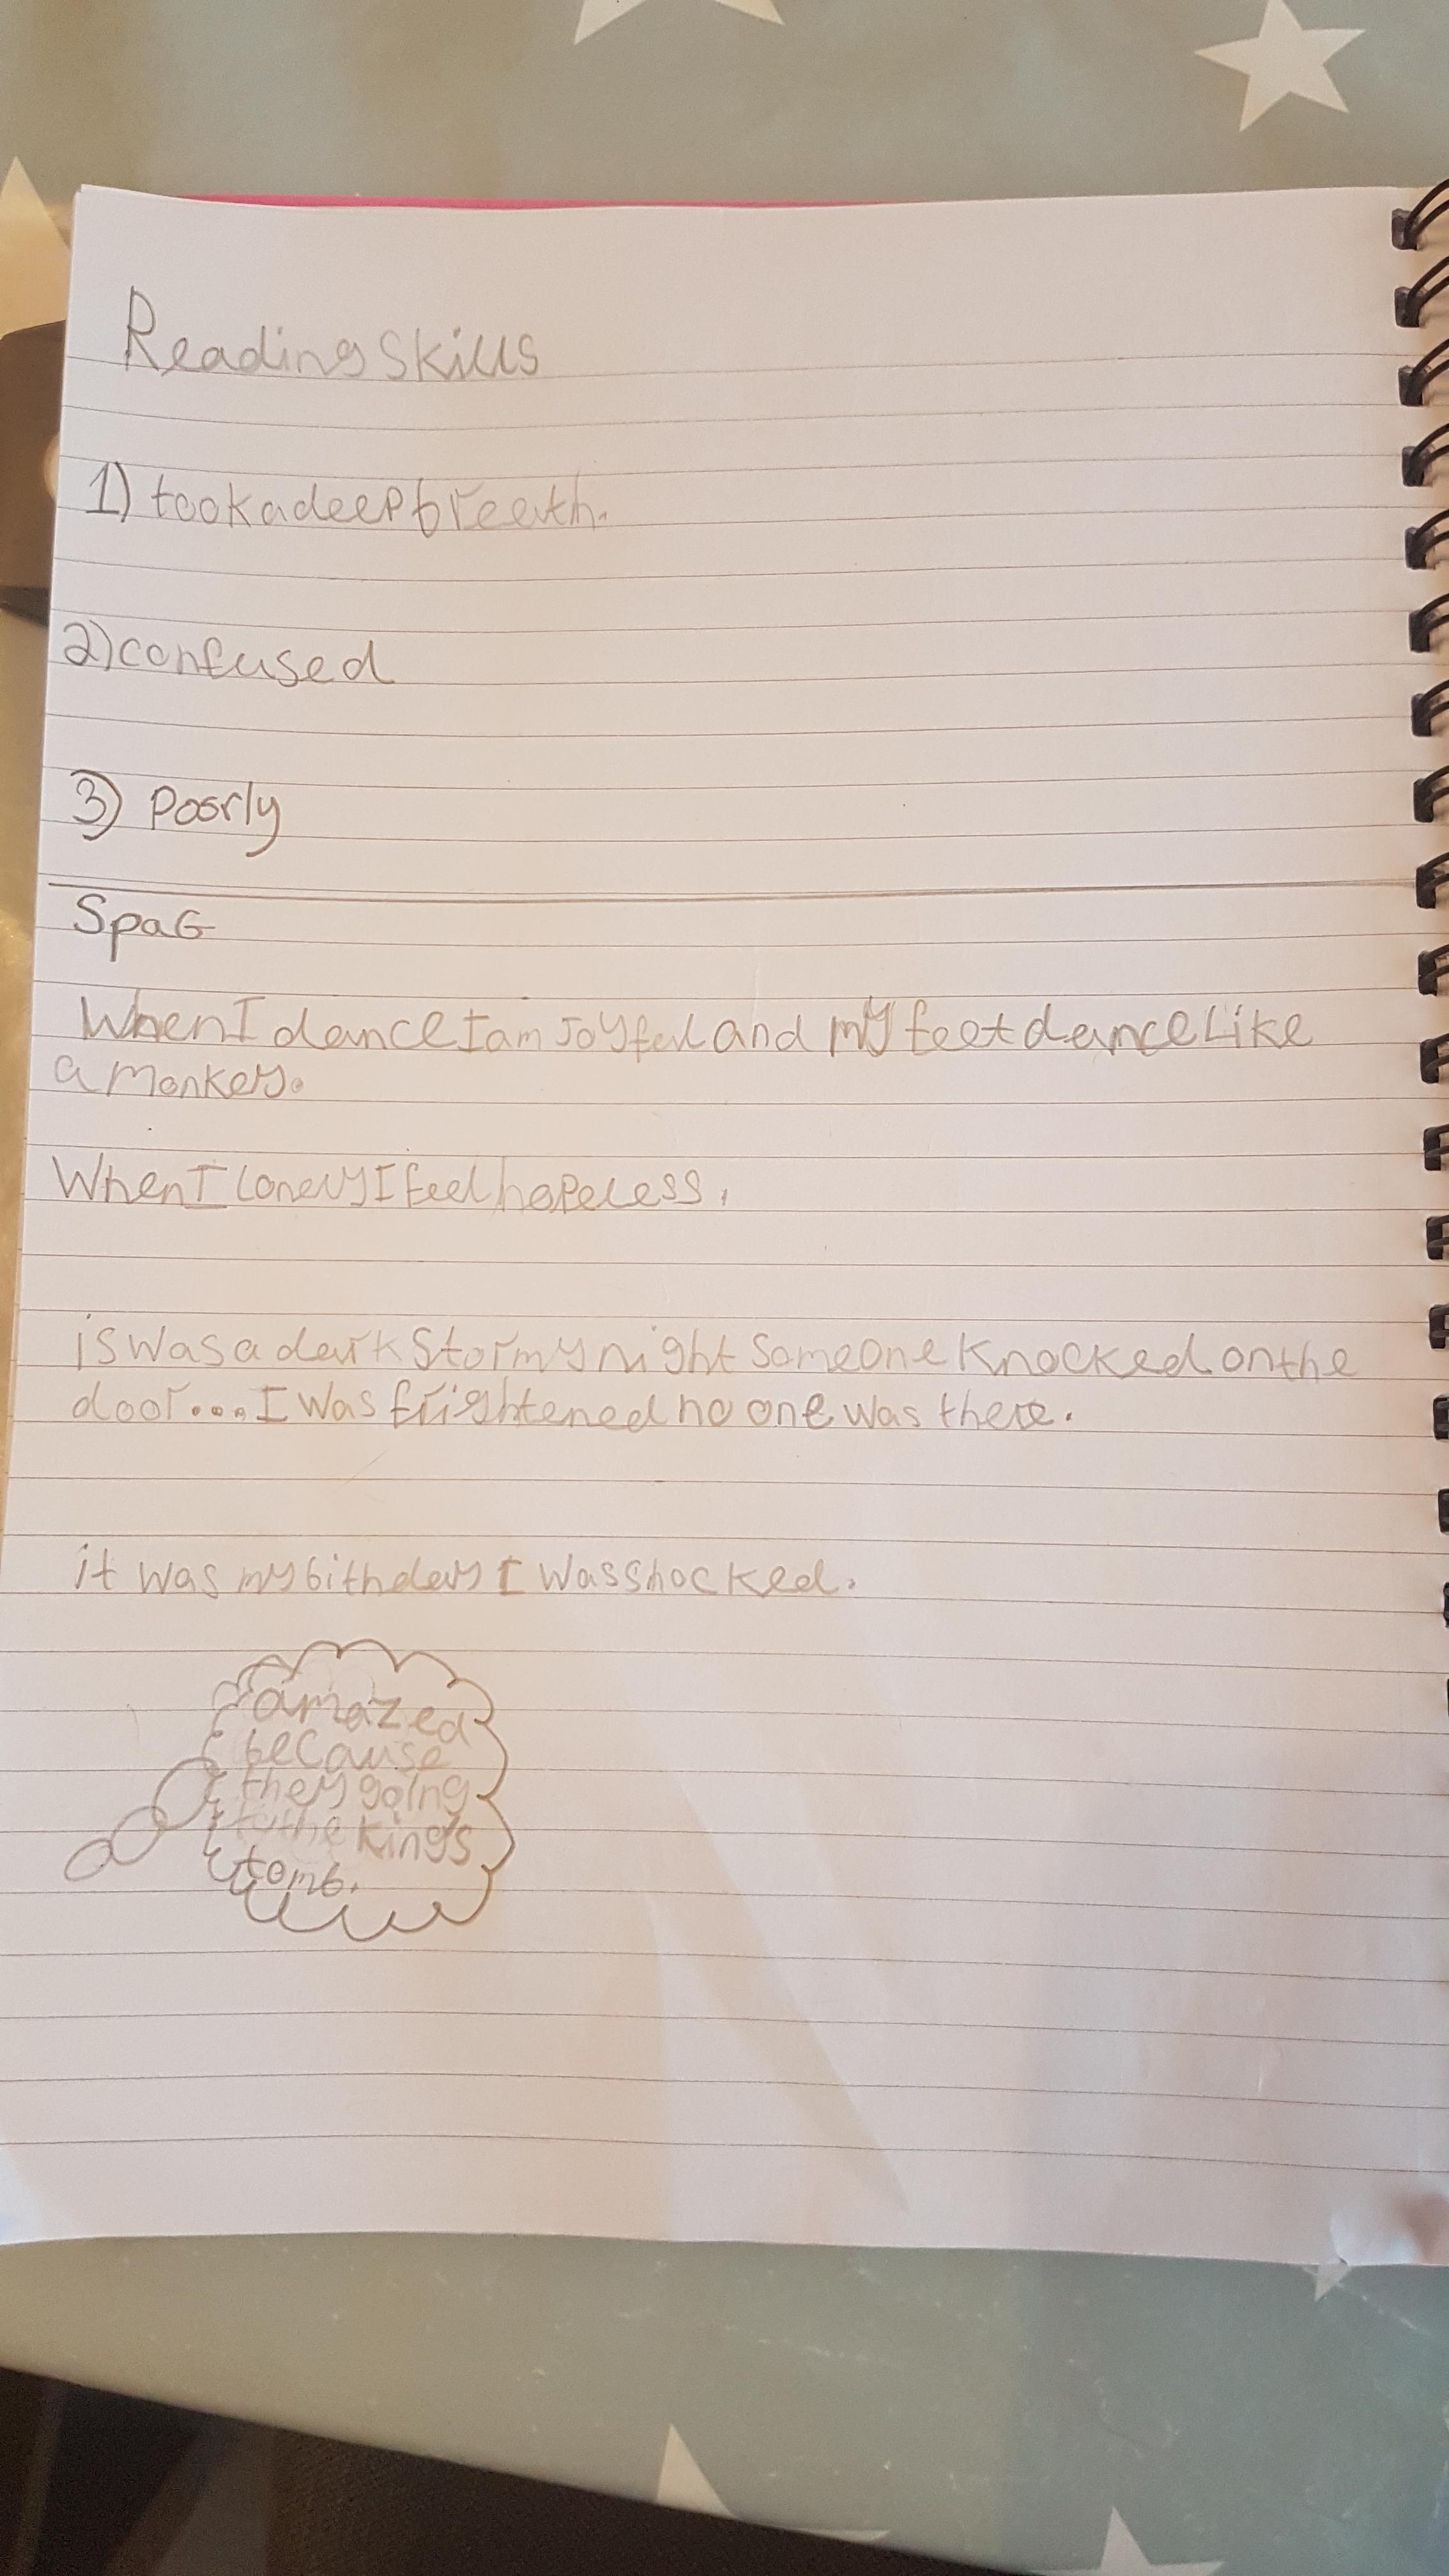 Reading skills
1) took a deep breath.
2) confused
3) Poorly
SpaG
When I dance I am Joyful and my feet dance Like
a monkey.
When I lonely I feel hopeless.
is was a dark stormy night someone knocked on the
door... I was frightened no one was there.
it was my bithday I was shocked.
amazed
because
they going
to the kings
tomb.